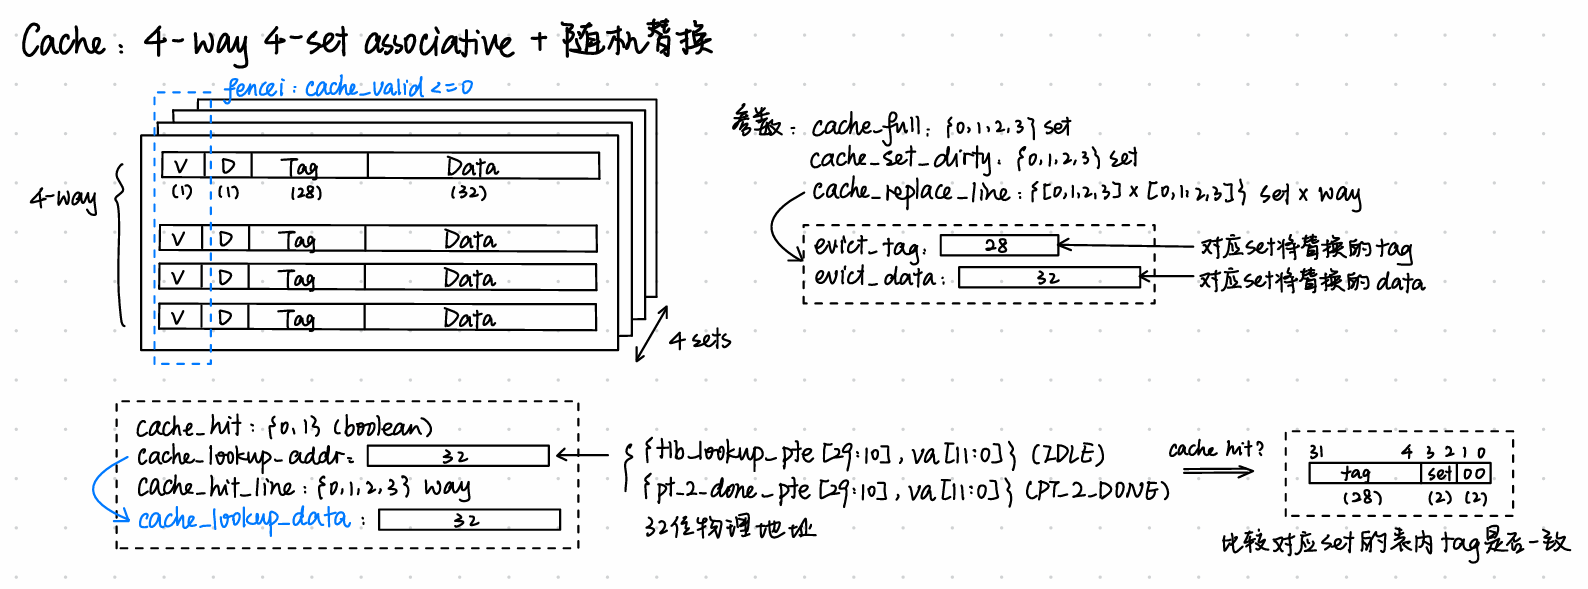 Cache: 4-way 4-set associative + 随机替换
fencei: cache_valid <= 0
4-way
V D Tag Data
(1) (1) (28) (32)
V D Tag Data
V D Tag Data
V D Tag Data
4 sets
参数: cache_full: {0,1,2,3} set
cache_set_dirty: {0,1,2,3} set
cache_replace_line: {[0,1,2,3] x [0,1,2,3]} set x way
evict_tag: 28
对应set将替换的tag
evict_data: 32
对应set将替换的data
cache_hit: {0,1} (boolean)
cache_lookup_addr: 32
cache_hit_line: {0,1,2,3} way
cache_lookup_data: 32
{tlb_lookup_pte [29:10], va[11:0]} (IDLE)
{pt_2_done_pte [29:10], va[11:0]} (PT_2_DONE)
32位物理地址
cache hit?
31 4 3 2 1 0
tag set 0 0
(28) (2) (2)
比较对应set的表内tag是否一致